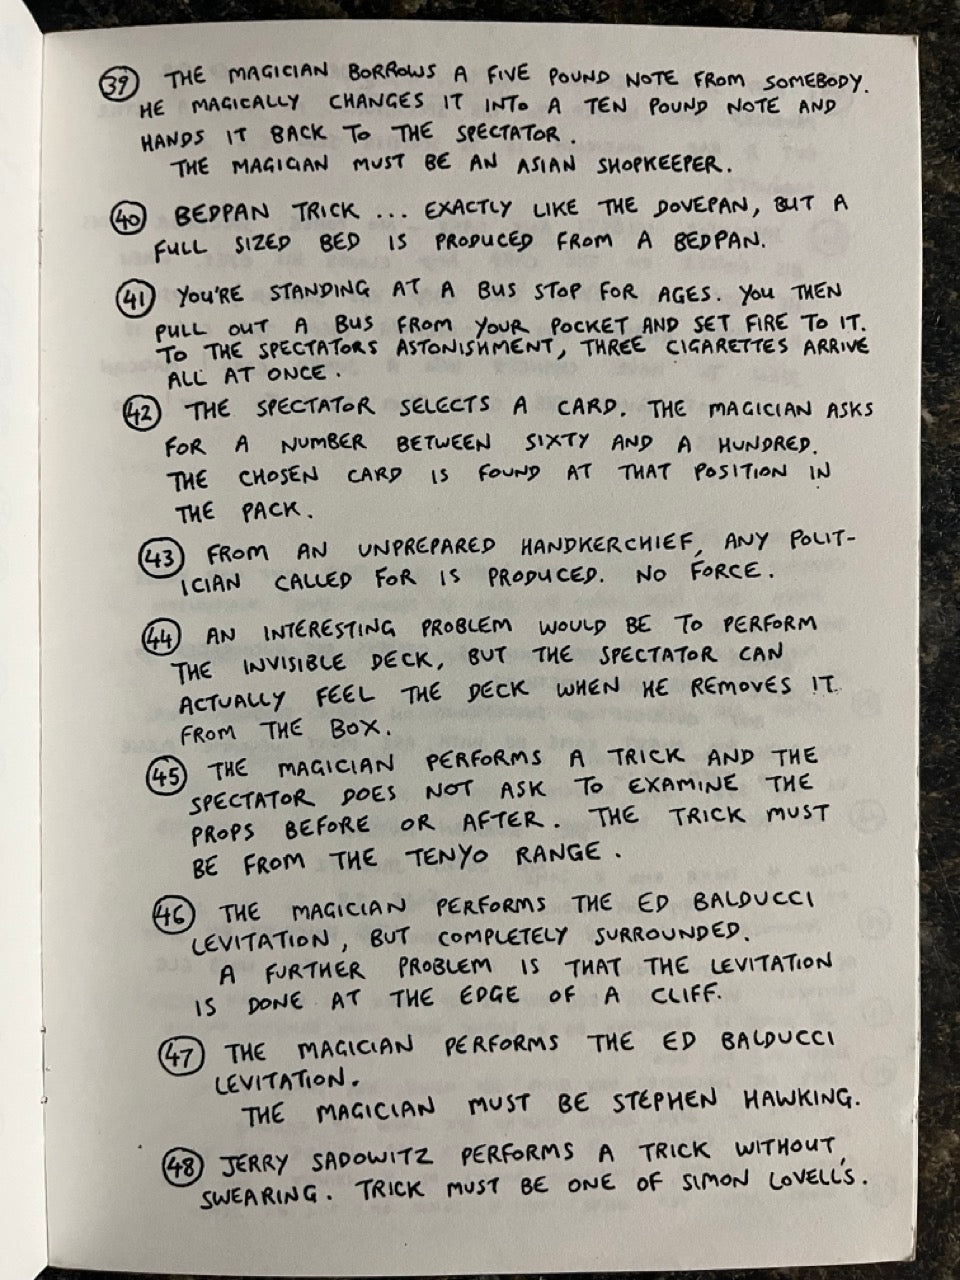 39 THE MAGICIAN BORROWS A FIVE POUND NOTE FROM SOMEBODY.
HE MAGICALLY CHANGES IT INTO A TEN POUND NOTE AND
HANDS IT BACK TO THE SPECTATOR.
THE MAGICIAN MUST BE AN ASIAN SHOPKEEPER.
40 BEDPAN TRICK ... EXACTLY LIKE THE DOVEPAN, BUT A
FULL SIZED BED IS PRODUCED FROM A BEDPAN.
41 YOU'RE STANDING AT A BUS STOP FOR AGES. YOU THEN
PULL OUT A BUS FROM YOUR POCKET AND SET FIRE TO IT.
TO THE SPECTATORS ASTONISHMENT, THREE CIGARETTES ARRIVE
ALL AT ONCE.
42 THE SPECTATOR SELECTS A CARD. THE MAGICIAN ASKS
FOR A NUMBER BETWEEN SIXTY AND A HUNDRED.
THE CHOSEN CARD IS FOUND AT THAT POSITION IN
THE PACK.
43 FROM AN UNPREPARED HANDKERCHIEF, ANY POLIT-
ICIAN CALLED FOR IS PRODUCED. NO FORCE.
44 AN INTERESTING PROBLEM WOULD BE TO PERFORM
THE INVISIBLE DECK, BUT THE SPECTATOR CAN
ACTUALLY FEEL THE DECK WHEN HE REMOVES IT
FROM THE BOX.
45 THE MAGICIAN PERFORMS A TRICK AND THE
SPECTATOR DOES NOT ASK TO EXAMINE THE
PROPS BEFORE OR AFTER. THE TRICK MUST
BE FROM THE TENYO RANGE.
46 THE MAGICIAN PERFORMS THE ED BALDUCCI
LEVITATION, BUT COMPLETELY SURROUNDED.
A FURTHER PROBLEM IS THAT THE LEVITATION
IS DONE AT THE EDGE OF A CLIFF.
47 THE MAGICIAN PERFORMS THE ED BALDUCCI
LEVITATION.
THE MAGICIAN MUST BE STEPHEN HAWKING.
48 JERRY SADOWITZ PERFORMS A TRICK WITHOUT
SWEARING. TRICK MUST BE ONE OF SIMON LOVELL'S.